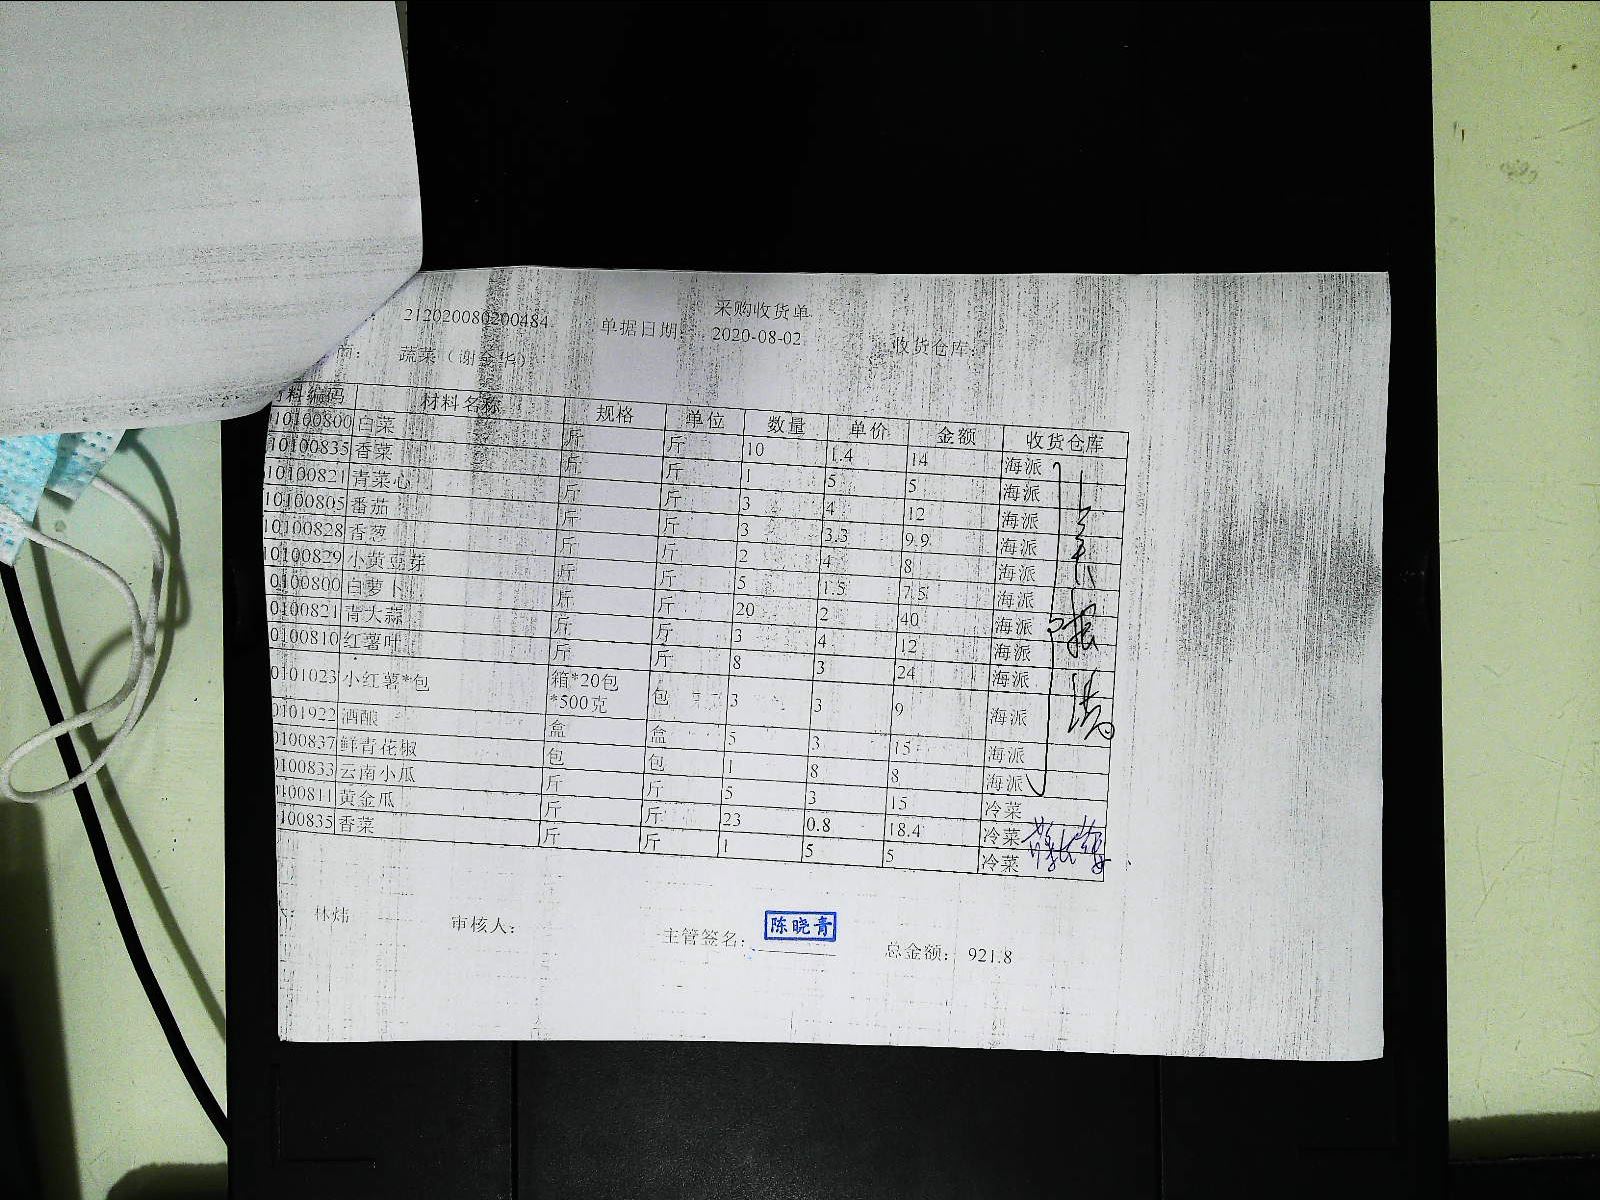 采购收货单
212020080200484 单据日期: 2020-08-02 收货仓库:
商: 蔬菜（谢金华）
材料编码 材料名称 规格 单位 数量 单价 金额 收货仓库
10100800 白菜 斤 斤 10 1.4 14 海派
10100835 香菜 斤 斤 1 5 5 海派
10100821 青菜心 斤 斤 3 4 12 海派
10100805 番茄 斤 斤 3 3.3 9.9 海派
10100828 香葱 斤 斤 2 4 8 海派
10100829 小黄豆芽 斤 斤 5 1.5 7.5 海派
0100800 白萝卜 斤 斤 20 2 40 海派
0100821 青大蒜 斤 斤 3 4 12 海派
0100810 红薯叶 斤 斤 8 3 24 海派
0101023 小红薯*包 箱*20包*500克 包 3 3 9 海派
0101922 酒酿 盒 盒 5 3 15 海派
0100837 鲜青花椒 包 包 1 8 8 海派
0100833 云南小瓜 斤 斤 5 3 15 冷菜
100811 黄金瓜 斤 斤 23 0.8 18.4 冷菜
100835 香菜 斤 斤 1 5 5 冷菜
林炜 审核人: 主管签名: 陈晓青 总金额: 921.8